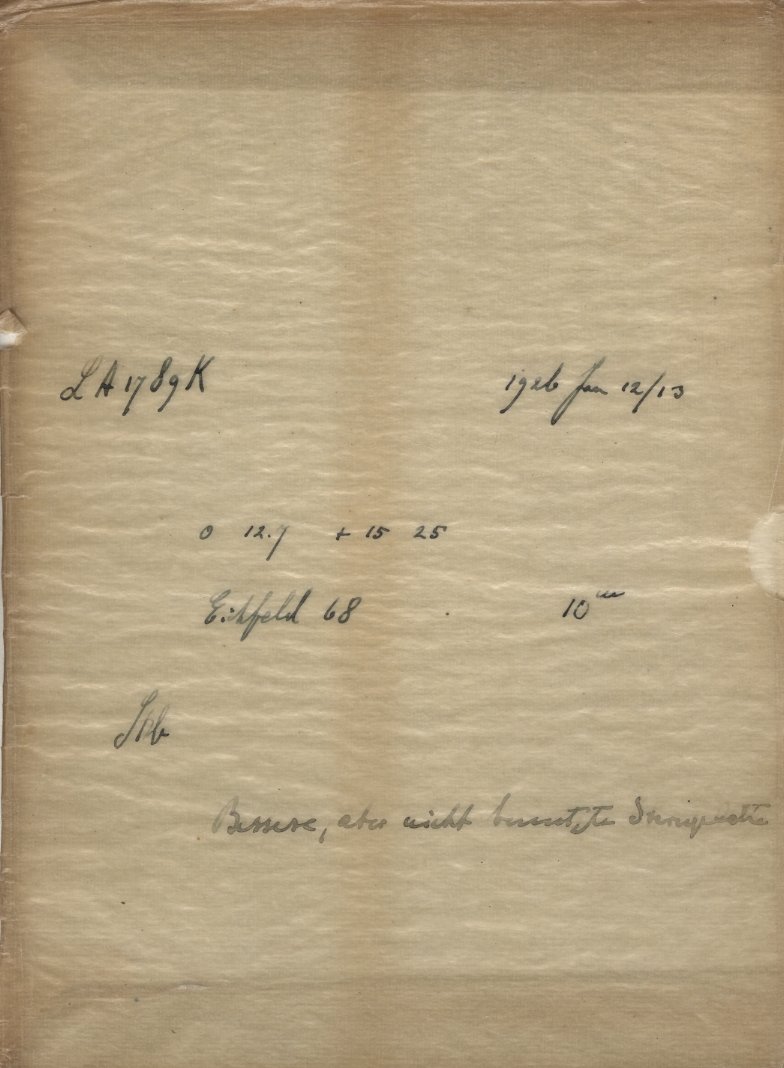 LA 1789 K 1926 Jan 12/13
0 12.7 + 15 25
Eichfeld 68 10ᵐ
Bessere, aber nicht benutzte